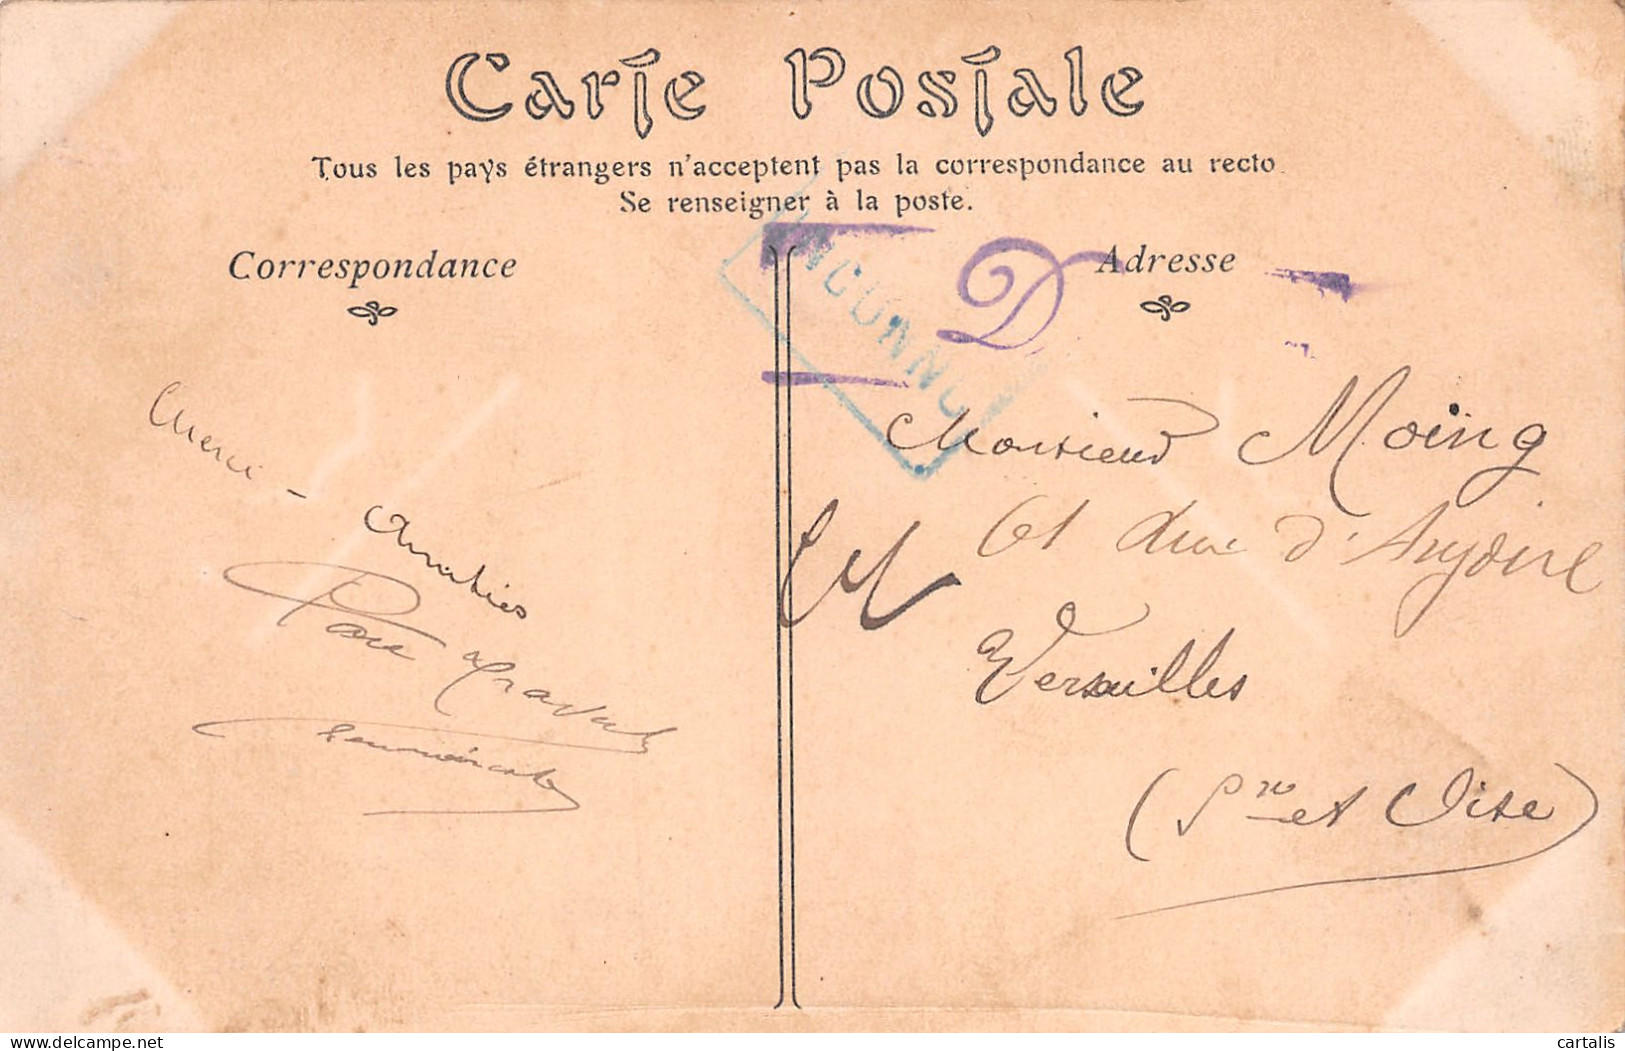 Carte Postale
Tous les pays étrangers n'acceptent pas la correspondance au recto
Se renseigner à la poste.
Correspondance
Adresse
INCONNU
D
Merci -
Amitiés
Monsieur Moing
61 rue d'
Versailles
(Sne et Oise)
delcampe.net
cartalis